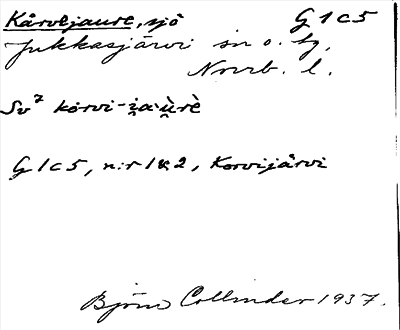 Kårvejaure, sjö G 1 c 5
Jukkasjärvi sn o. tg,
Norrb. l.
Sv⁷ kårvi-i̯a·ùrè
G 1 c 5, n:r 1 & 2, Korvijärvi
Björn Collinder 1937.